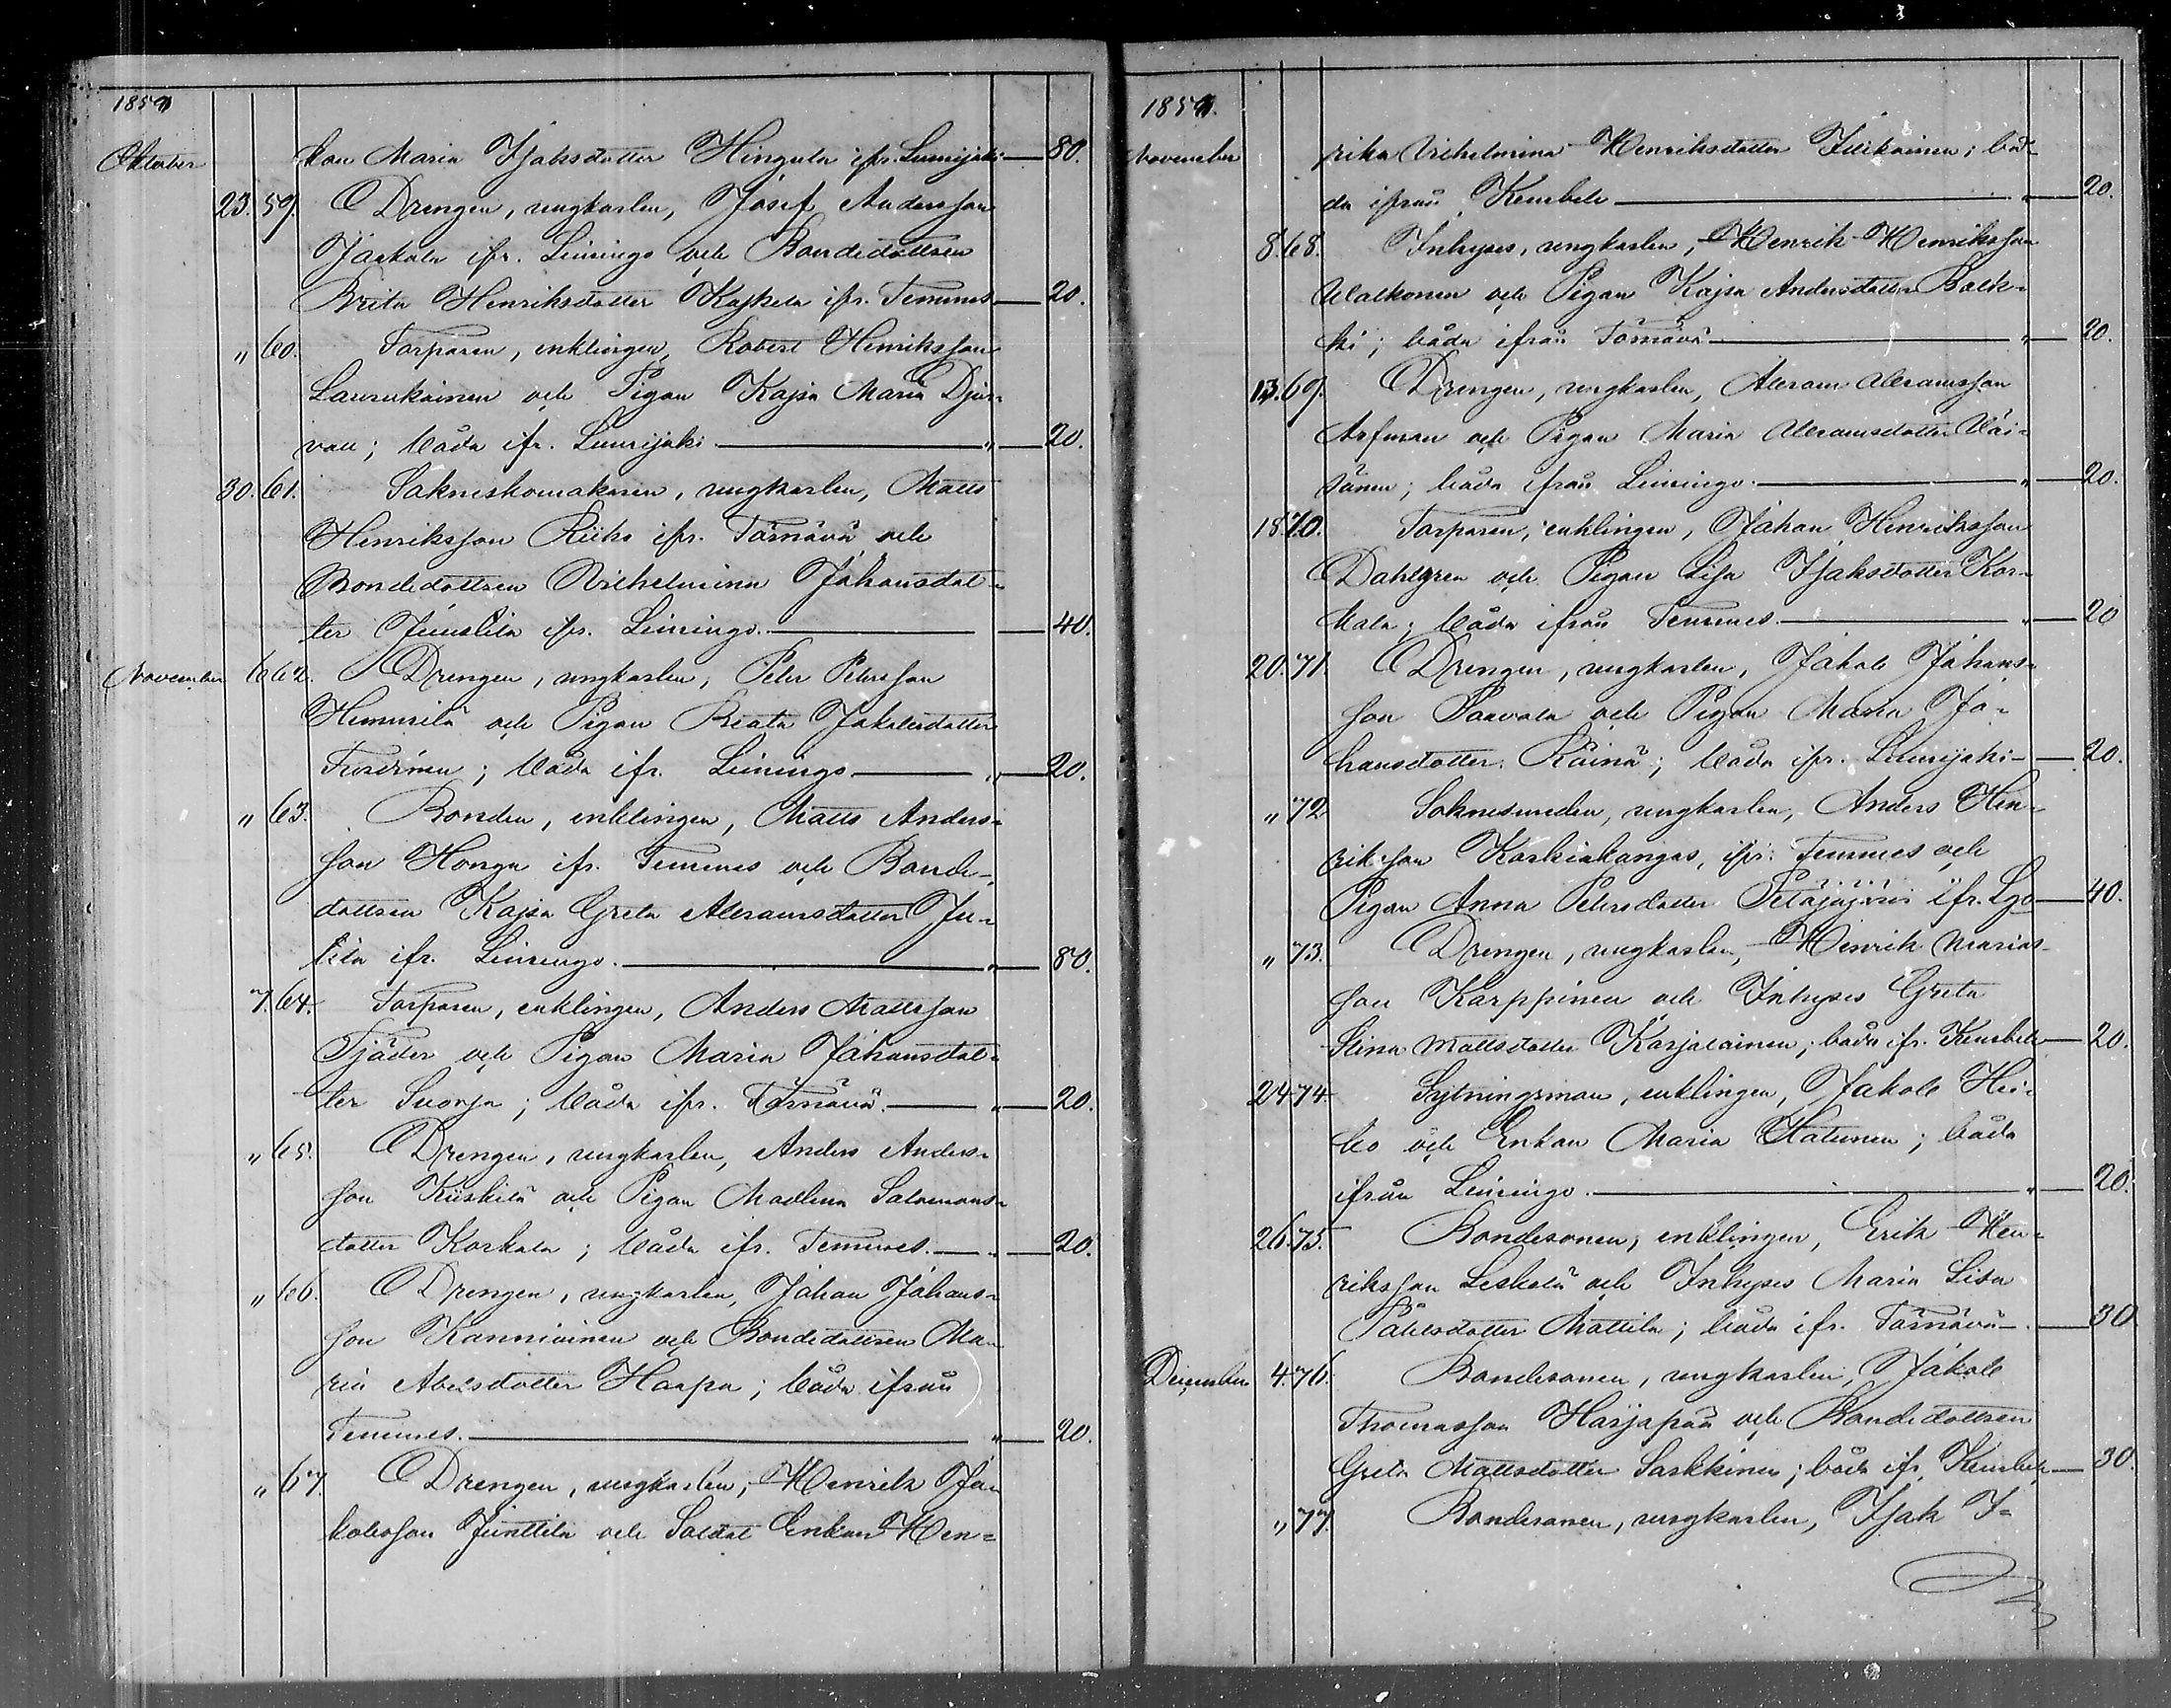 1859
Oktober kan Maria Isaksdotter Hingula ifr. Lumijoki — 80.
23. 59. Drengen, ungkarlen, Josef Andersson
Jaakola ifr. Limingo och Bondedottren
Brita Henriksdotter Kajkela ifr. Temmes — 20.
" 60. Torparen, enklingen, Robert Henriksson
Laurukainen och Pigan Kajsa Maria Djur-
vall; båda ifr. Lumijoki — " — 20.
30. 61. Sokneskomakaren, ungkarlen, Matts
Henriksson Riiko ifr. Törnävä och
Bondedottren Wilhelmina Johansdot-
ter Junttila ifr. Limingo. — 40.
November 6 62. Drengen, ungkarlen, Peter Petersson
Hemmilä och Pigan Beata Jakobsdotter
; båda ifr. Limingo — " — 20.
" 63. Bonden, enklingen, Matts Anders-
son Honga ifr. Temmes och Bonde-
dottren Kajsa Greta Abramsdotter Ju-
tila ifr. Limingo. — " — 80.
7. 64. Torparen, enklingen, Anders Mattsson
Tjäder och Pigan Maria Johansdot-
ter Suorsa; båda ifr. Törnävä. — " — 20.
" 65. Drengen, ungkarlen, Anders Anders-
son Kiiskilä och Pigan Madlena Salomons-
dotter Korkala; båda ifr. Temmes. — " — 20.
" 66. Drengen, ungkarlen, Johan Johans-
son Kanniainen och Bondedottren Ma-
ria Abelsdotter Haapa; båda ifrån
Temmes. — " — 20.
" 67. Drengen, ungkarlen, Henrik Ja-
kobsson Junttila och Soldat Enkan Hen-
1859.
November rika Vilhelmina Henriksdotter Ilikainen; bå-
da ifrån Kembele — " — 20.
8. 68. Inhyses, ungkarlen, Henrik Henriksson
Ualkonen och Pigan Kajsa Andersdotter Bolk-
ki; båda ifrån Törnävä — " — 20.
13. 69. Drengen, ungkarlen, Abram Abramsson
Arfman och Pigan Maria Abramsdotter Väi-
sänen; båda ifrån Limingo. — " — 20.
18. 70. Torparen, enklingen, Johan Henriksson
Dahlgren och Pigan Lisa Isaksdotter Kor-
kala; båda ifrån Temmes. — " — 20
20. 71. Drengen, ungkarlen, Jakob Johans-
son Paavola och Pigan Maria Jo-
hansdotter Räinä; båda ifr. Lumijoki — 20.
" 72 Soknesmeden, ungkarlen, Anders Hen-
riksson Koskinkangas, ifr. Temmes och
Pigan Anna Petersdotter Petäjäjärvi ifr. Lgo — 40.
" 73. Drengen, ungkarlen, Henrik Marias-
son Karppinen och Inhyses Greta
Stina Mattsdotter Karjalainen; båda ifr. Kembele — 20.
24 74 Sytningsman, enklingen, Jakob Hei-
ko och Enkan Maria Hatunen; båda
ifrån Limingo. — " — 20.
26. 75. Bondesonen, enklingen, Erik Hen-
riksson Leskelä och Inhyses Maria Lisa
Påhlsdotter Mattila; båda ifr. Törnävä — 30
December 4. 76. Bondesonen, ungkarlen, Jakob
Thomasson Harjapää och Bondedottren
Greta Mattsdotter Sarkkinen; båda ifr. Kembele — 30.
" 77. Bondesonen, ungkarlen, Isak I-